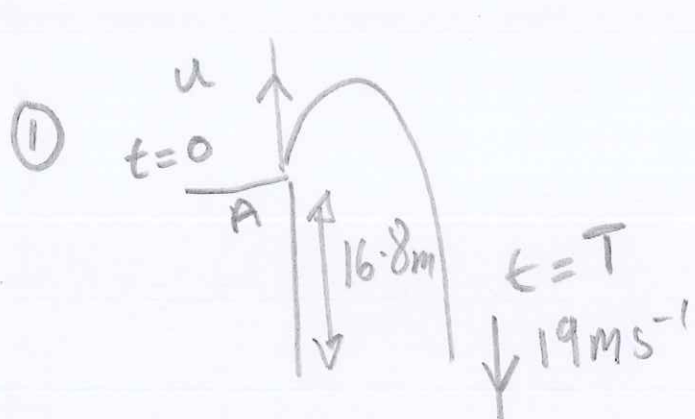 ①
u
t=0
A
16.8m
t=T
19ms⁻¹